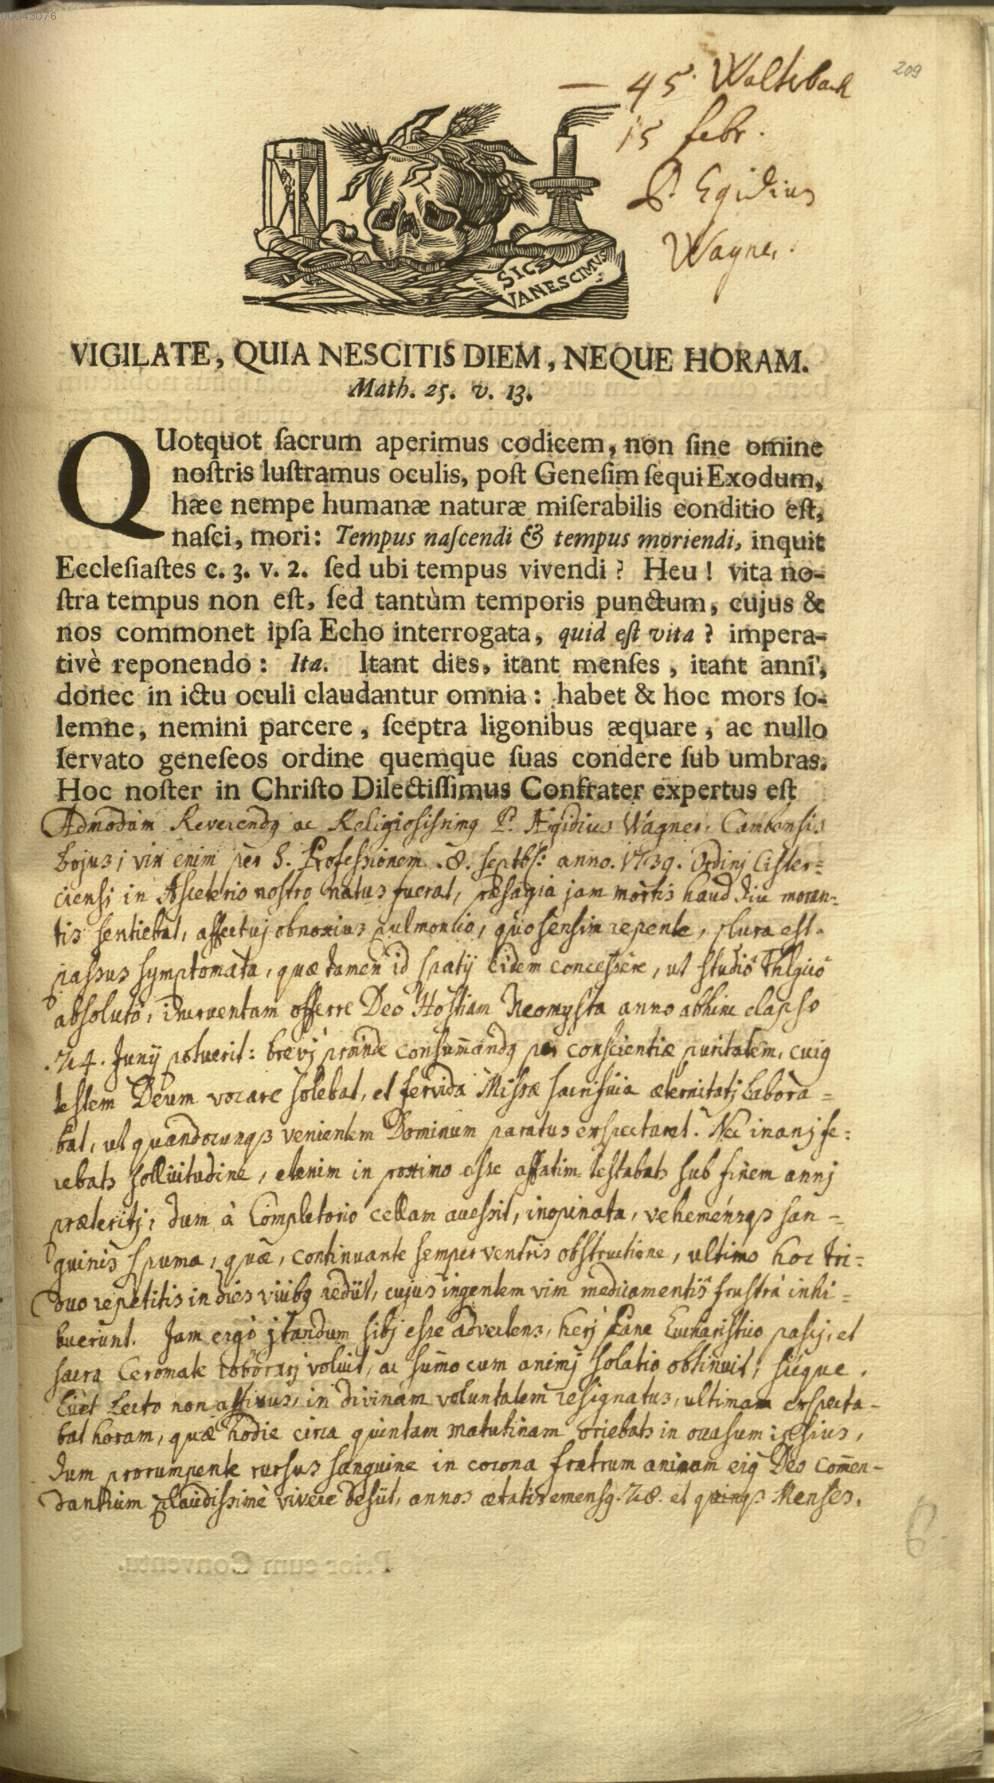 00043076
209
— 45. Walderbach
15 febr.
P. Egidius
Wagner.
SIC
VANESCIMUS
VIGILATE, QUIA NESCITIS DIEM, NEQUE HORAM.
Math. 25. v. 13.
QUotquot ſacrum aperimus codicem, non ſine omine
noſtris luſtramus oculis, poſt Geneſim ſequi Exodum,
hæc nempe humanæ naturæ miſerabilis conditio eſt,
naſci, mori: Tempus naſcendi & tempus moriendi, inquit
Eccleſiaſtes c. 3. v. 2. ſed ubi tempus vivendi? Heu! vita no-
ſtra tempus non eſt, ſed tantùm temporis punctum, cujus &
nos commonet ipſa Echo interrogata, quid eſt vita? impera-
tivè reponendo: Ita. Itant dies, itant menſes, itant anni,
donec in ictu oculi claudantur omnia: habet & hoc mors ſo-
lemne, nemini parcere, ſceptra ligonibus æquare, ac nullo
ſervato geneſeos ordine quemque ſuas condere ſub umbras.
Hoc noſter in Chriſto Dilectiſſimus Confrater expertus eſt
Admodum Reverendq ac Religiosissimq P. Ægidius Wagner, Cambensis
Bojus; vix enim per S. Professionem .8. septbs: anno. 1739. Ordinj Cister=
ciensi in Asceterio nostro natus fuerat, præsagia jam mortis haud diu moran-
tis sentiebat, affectuj obnoxius pulmonico, quo sensim repente, plura est
passus symptomata, quæ tamen id spatij eidem concessere, ut studio Thlgico
absoluto, incruentam offerre Deo Hostiam Neomysta anno abhinc elapso
.24. Junij potuerit: brevj proinde consumandq per conscientiæ puritatem, cuiq
testem Deum vocare solebat, et fervida Missæ sacrificia æternitatj labora=
bat, ut quandocunqs venientem Dominum paratus exspectaret. Nec inanj fe=
rebats sollicitudine, etenim in proximo esse affatim testabats sub finem annj
præteritj, dum à Completorio cellam accessit, inopinata, vehemensqs san-
guinis spuma, quæ, continuante semper ventris obstructione, ultimo hoc tri=
duo repetitis in dies vicibq rediit, cujus ingentem vim medicamentis frustrà inhi=
buerunt. Jam ergo itandum sibj esse advertens, herj Pane Eucharistico pascj, et
sacro Ceromate roborarj voluit, ac summo cum animj solatio obtinuit; sicque,
licet Lecto non affixus, in divinam voluntatem resignatus, ultimam exspecta-
bat horam, quæ hodie circa quintam matutinam oriebats in occasum ipsius,
dum prorumpente rursus sanguine in corona fratrum animam eiq Deo comen-
dantium placidissimè vivere desiit, annos ætatis emensq .28. et quinqs Menses.
Prior cum Conventu.